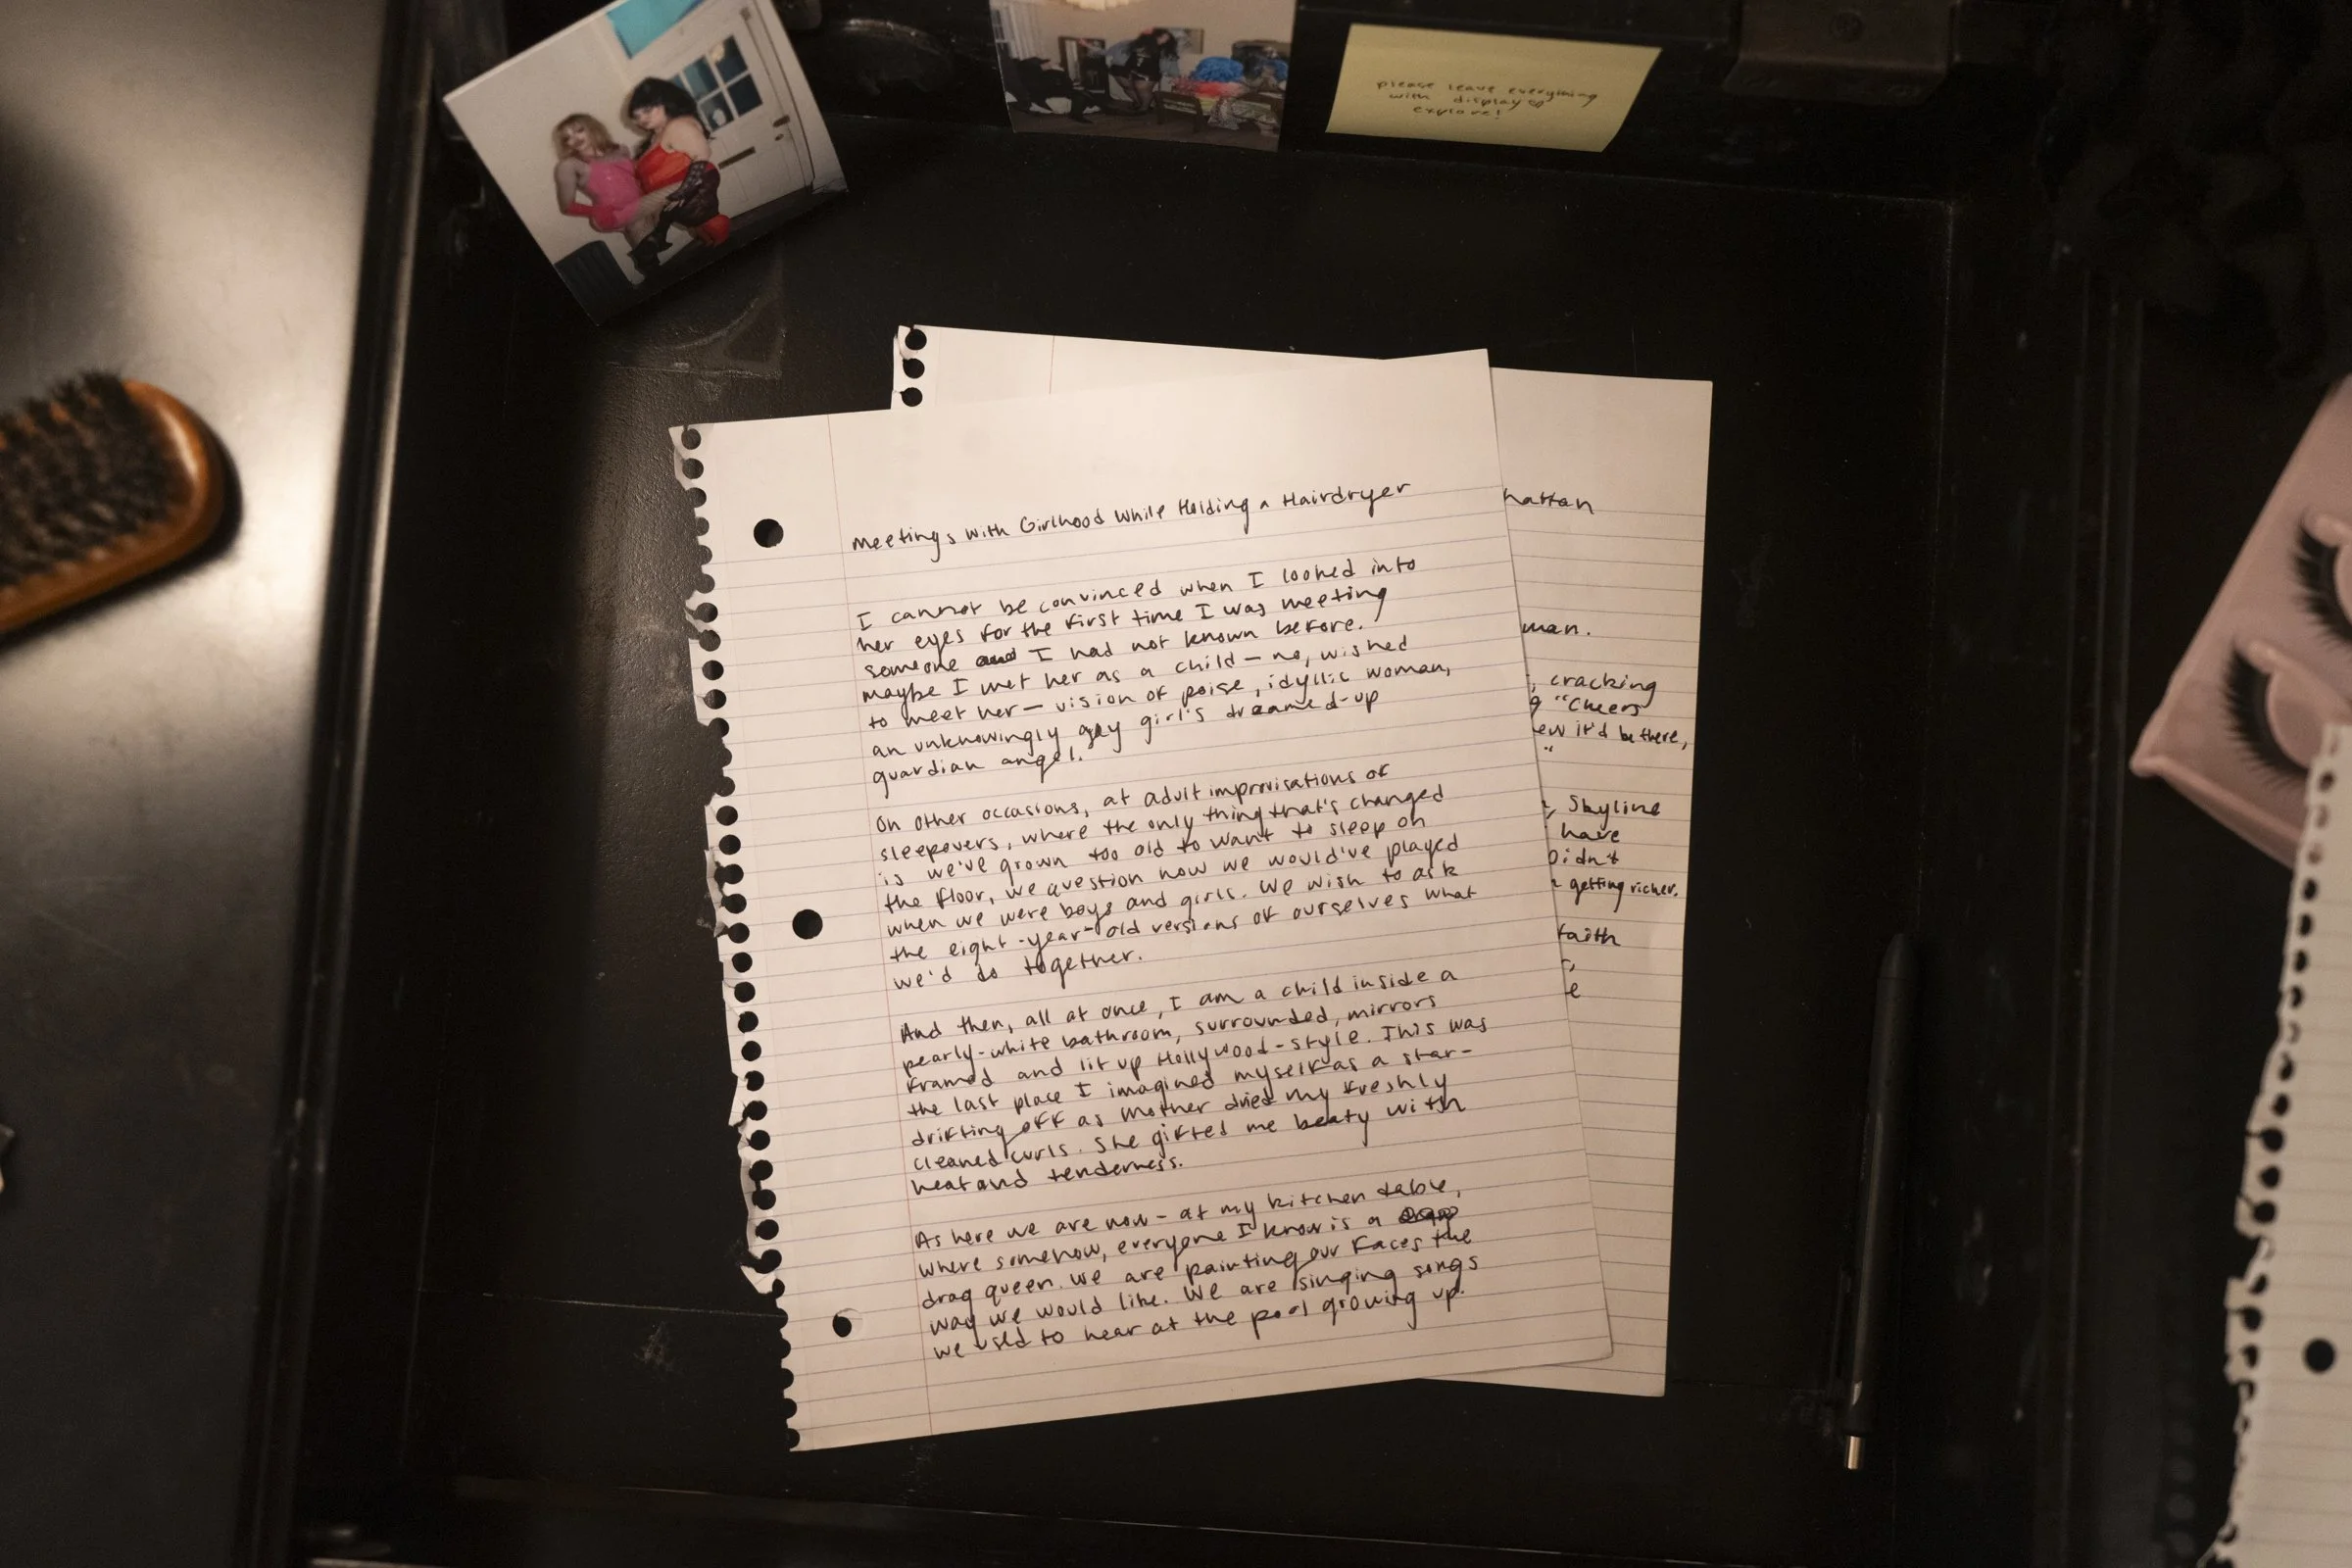 please leave everything
with display &
explore!
Meetings with Girlhood While Holding a Hairdryer
I cannot be convinced when I looked into
her eyes for the first time I was meeting
someone I had not known before.
maybe I met her as a child — no, wished
to meet her — vision of poise, idyllic woman,
an unknowingly gay girl's dreamed-up
guardian angel.
On other occasions, at adult improvisations of
sleepovers, where the only thing that's changed
is we've grown too old to want to sleep on
the floor, we question how we would've played
when we were boys and girls. We wish to ask
the eight-year-old versions of ourselves what
we'd do together.
And then, all at once, I am a child inside a
pearly-white bathroom, surrounded, mirrors
framed and lit up Hollywood-style. This was
the last place I imagined myself as a star-
drifting off as Mother dried my freshly
cleaned curls. She gifted me beaty with
heat and tenderness.
As here we are now - at my kitchen table,
where somehow, everyone I know is a
drag queen. We are painting our faces the
way we would like. We are singing songs
we used to hear at the pool growing up.
hattan
man.
, cracking
"Cheers
ew it'd be there,
"
, Skyline
have
Didn't
getting richer.
faith